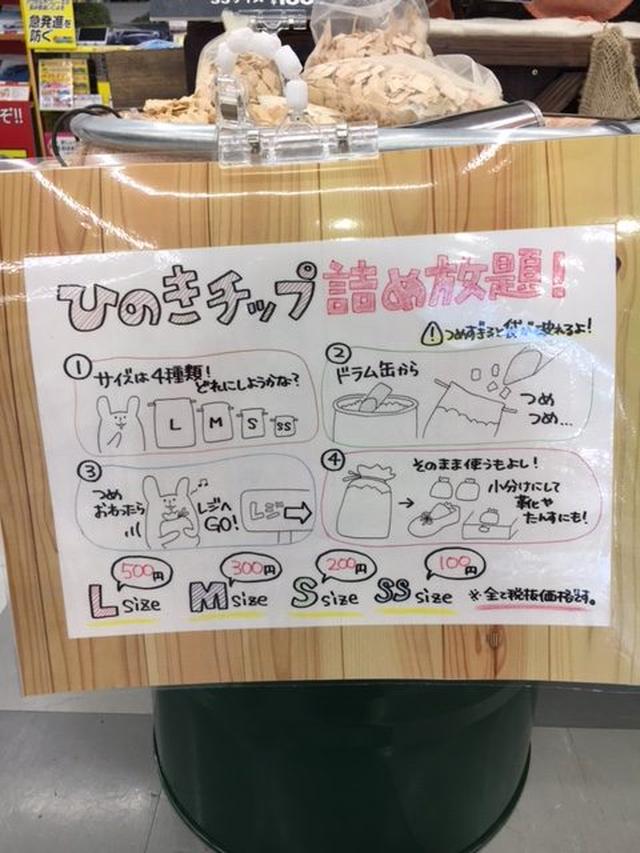 急発進を
防ぐ
ぞ!!
ひのきチップ詰め放題!
つめすぎると袋が破れるよ!
①
サイズは4種類!
どれにしようかな?
L M S SS
②
ドラム缶から
つめ
つめ…
③
つめ
おわったら
レジへ
GO!
レジ
④
そのまま使うもよし!
小分けにして
靴や
たんすにも!
500円 300円 200円 100円
L size M size S size SS size ※全て税抜価格です。